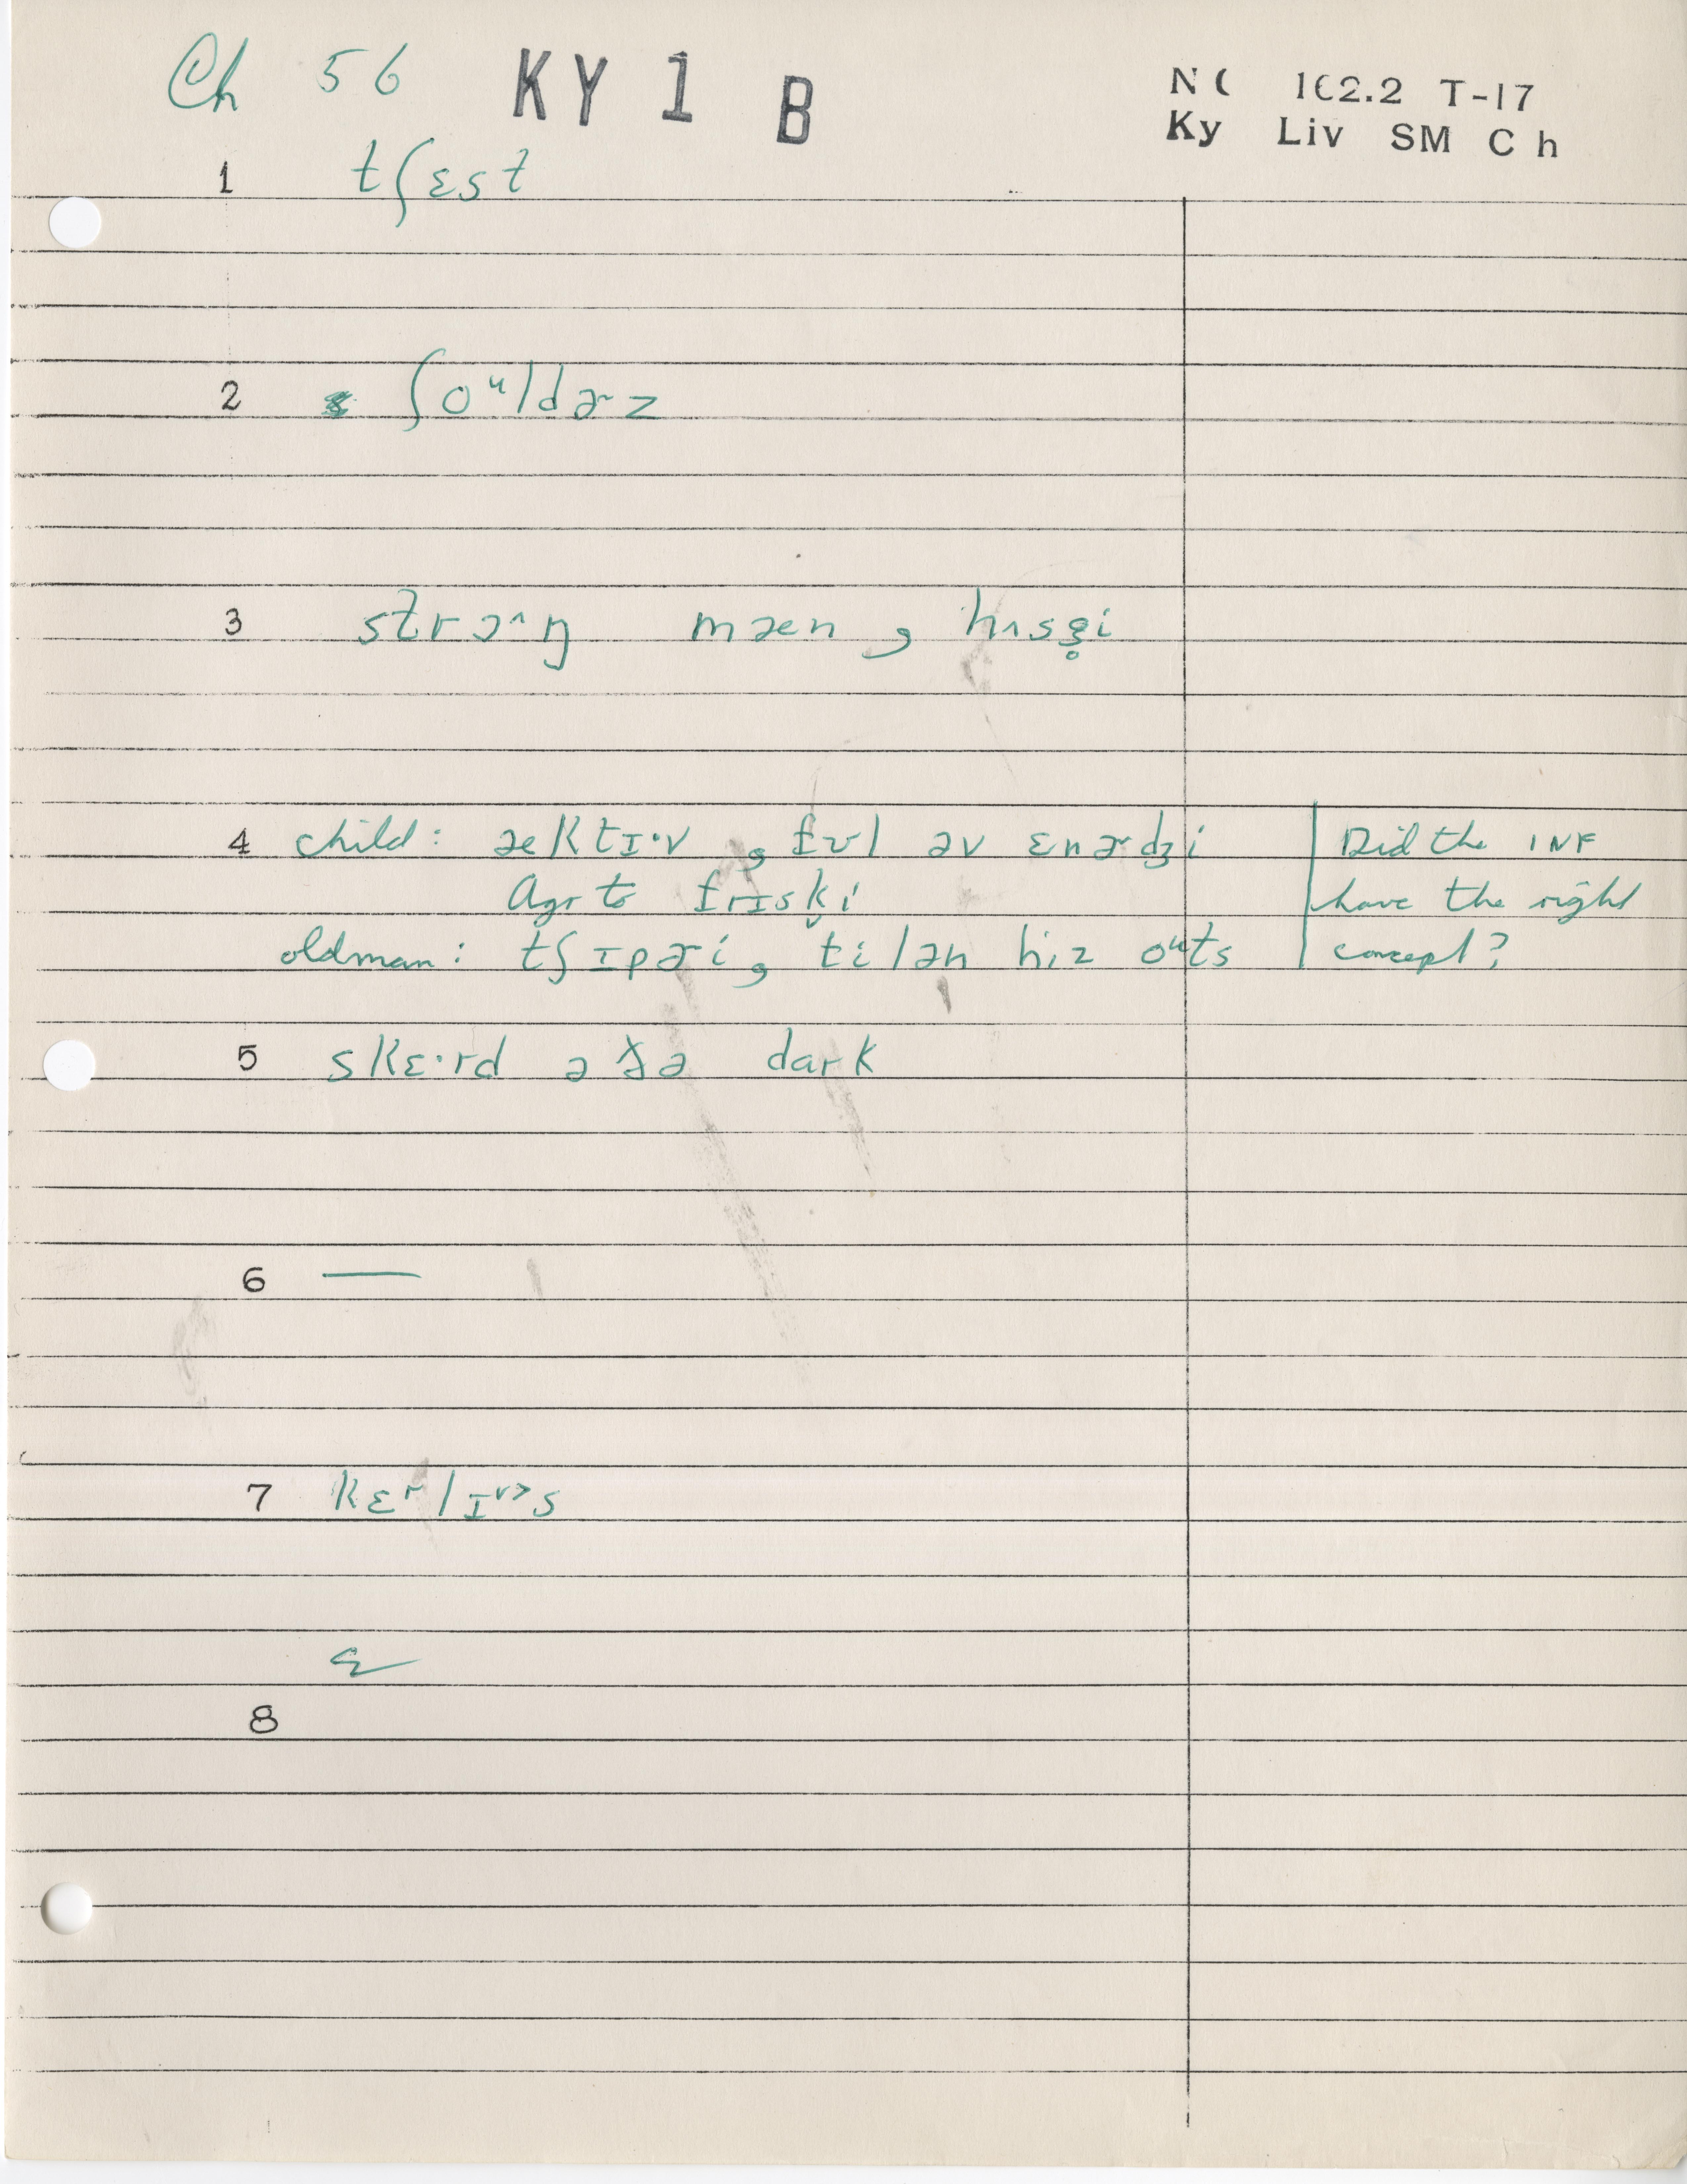 Ch 56 KY 1 B
N C 162.2 T-17
Ky Liv SM Ch
1 tʃɛst
2 ʃoᵘldɚz
3 strɔ^ŋ mæn, hʌsg̥i
4 child: æktɪ·v, fʊl əv ɛnɚdʒi
Agr to frɪsk̬i
oldman: tʃɪpɚi, filən hiz oᵘts
Did the INF
have the right
concept?
5 skɛ·rd əðə dark
6 —
7 kɛʳlɪ˅˃s
8